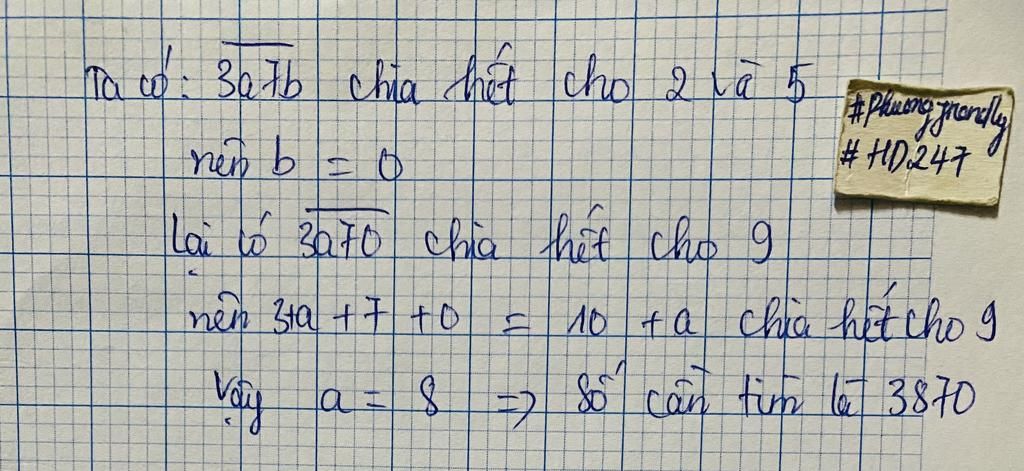 Ta có: 3a7b chia hết cho 2 và 5
nên b = 0
Lại có 3a70 chia hết cho 9
nên 3+a +7 +0 = 10 +a chia hết cho 9
Vậy a = 8 => số cần tìm là 3870
#Phuongfriendly
#HD247